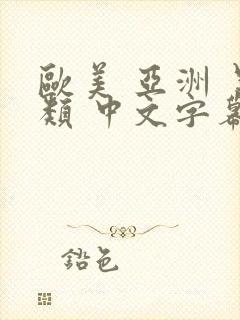 歐美 亞洲
類 中文字幕
鉛色